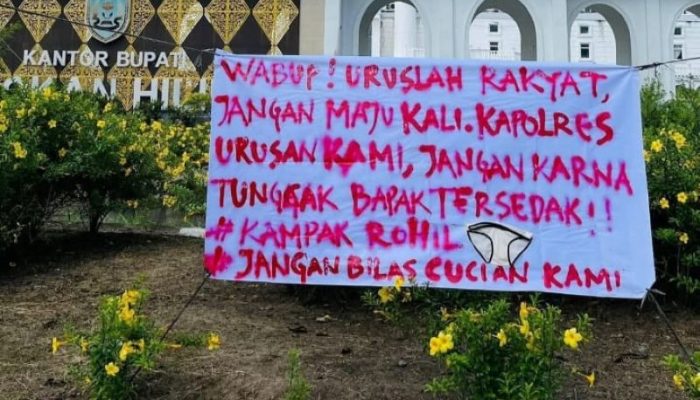 KANTOR BUPATI
ROKAN HILIR
WABUP! URUSLAH RAKYAT,
JANGAN MAJU KALI. KAPOLRES
URUSAN KAMI, JANGAN KARNA
TUNGGAK BAPAK TERSEDAK!!
# KAMPAK ROHIL
# JANGAN BILAS CUCIAN KAMI